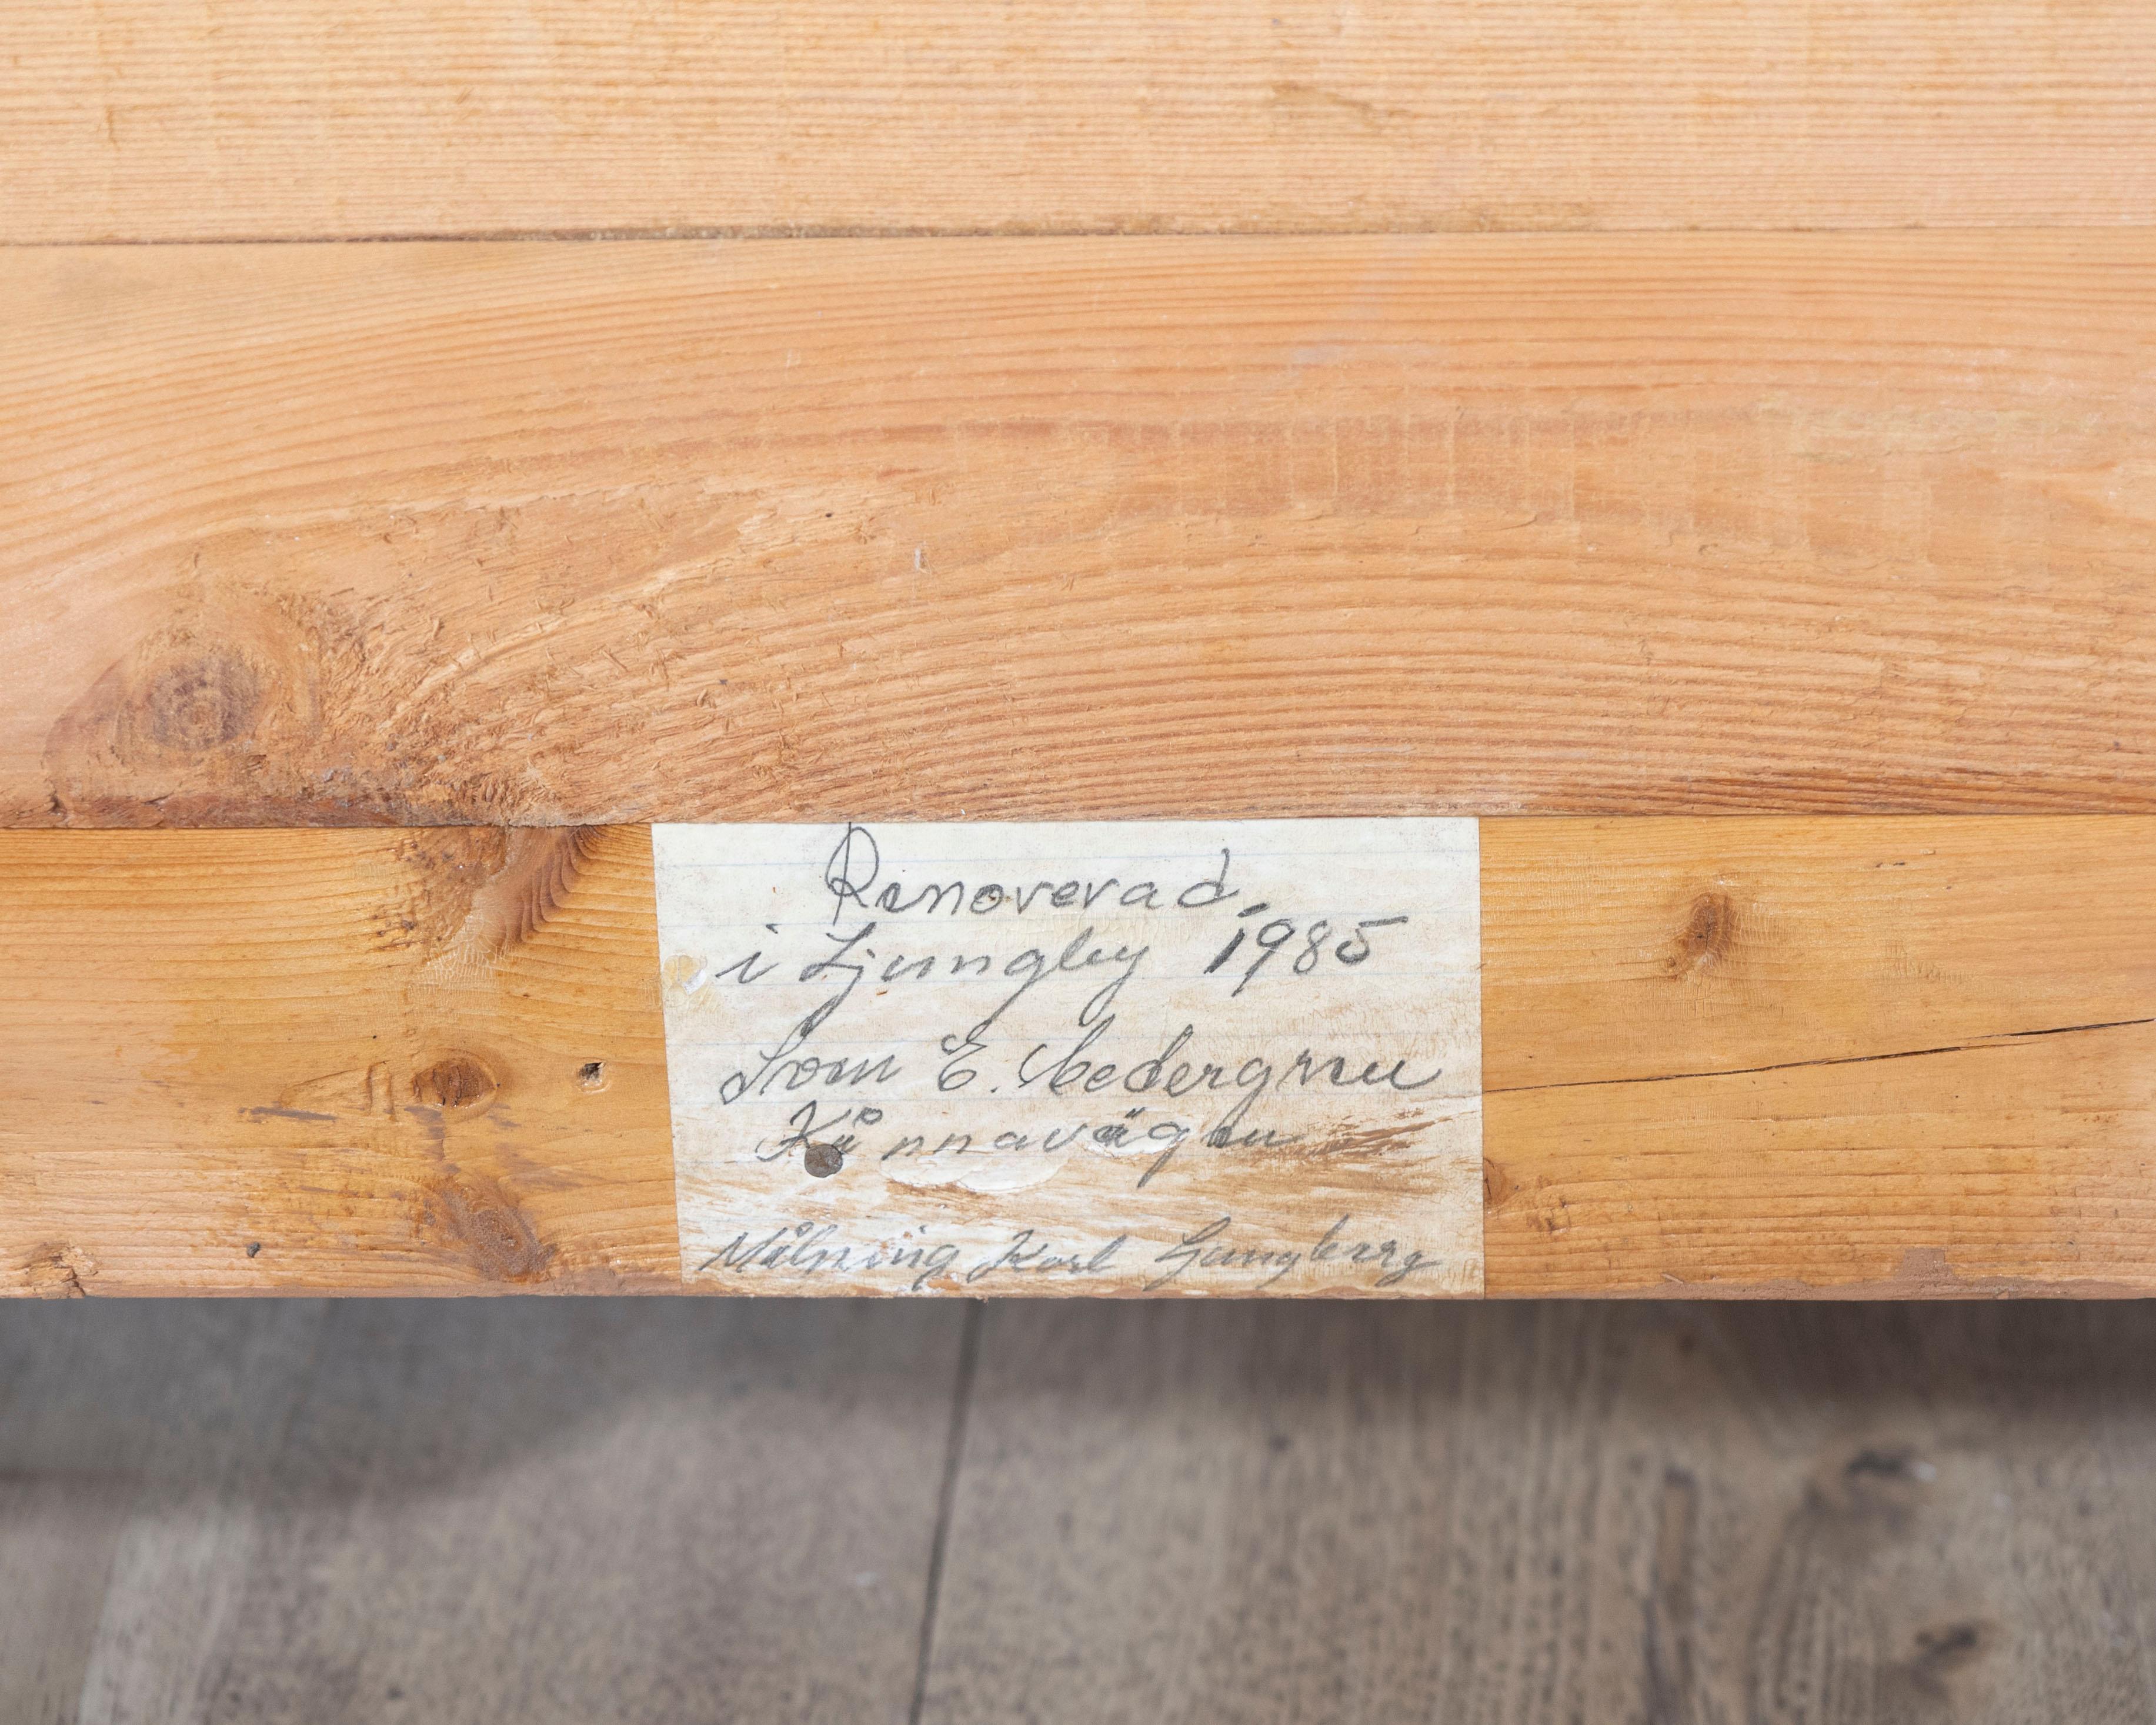 Renoverad.
i Ljungby 1985
Som E. Cedergren
Kånnavägen
Målning Karl Ljungberg